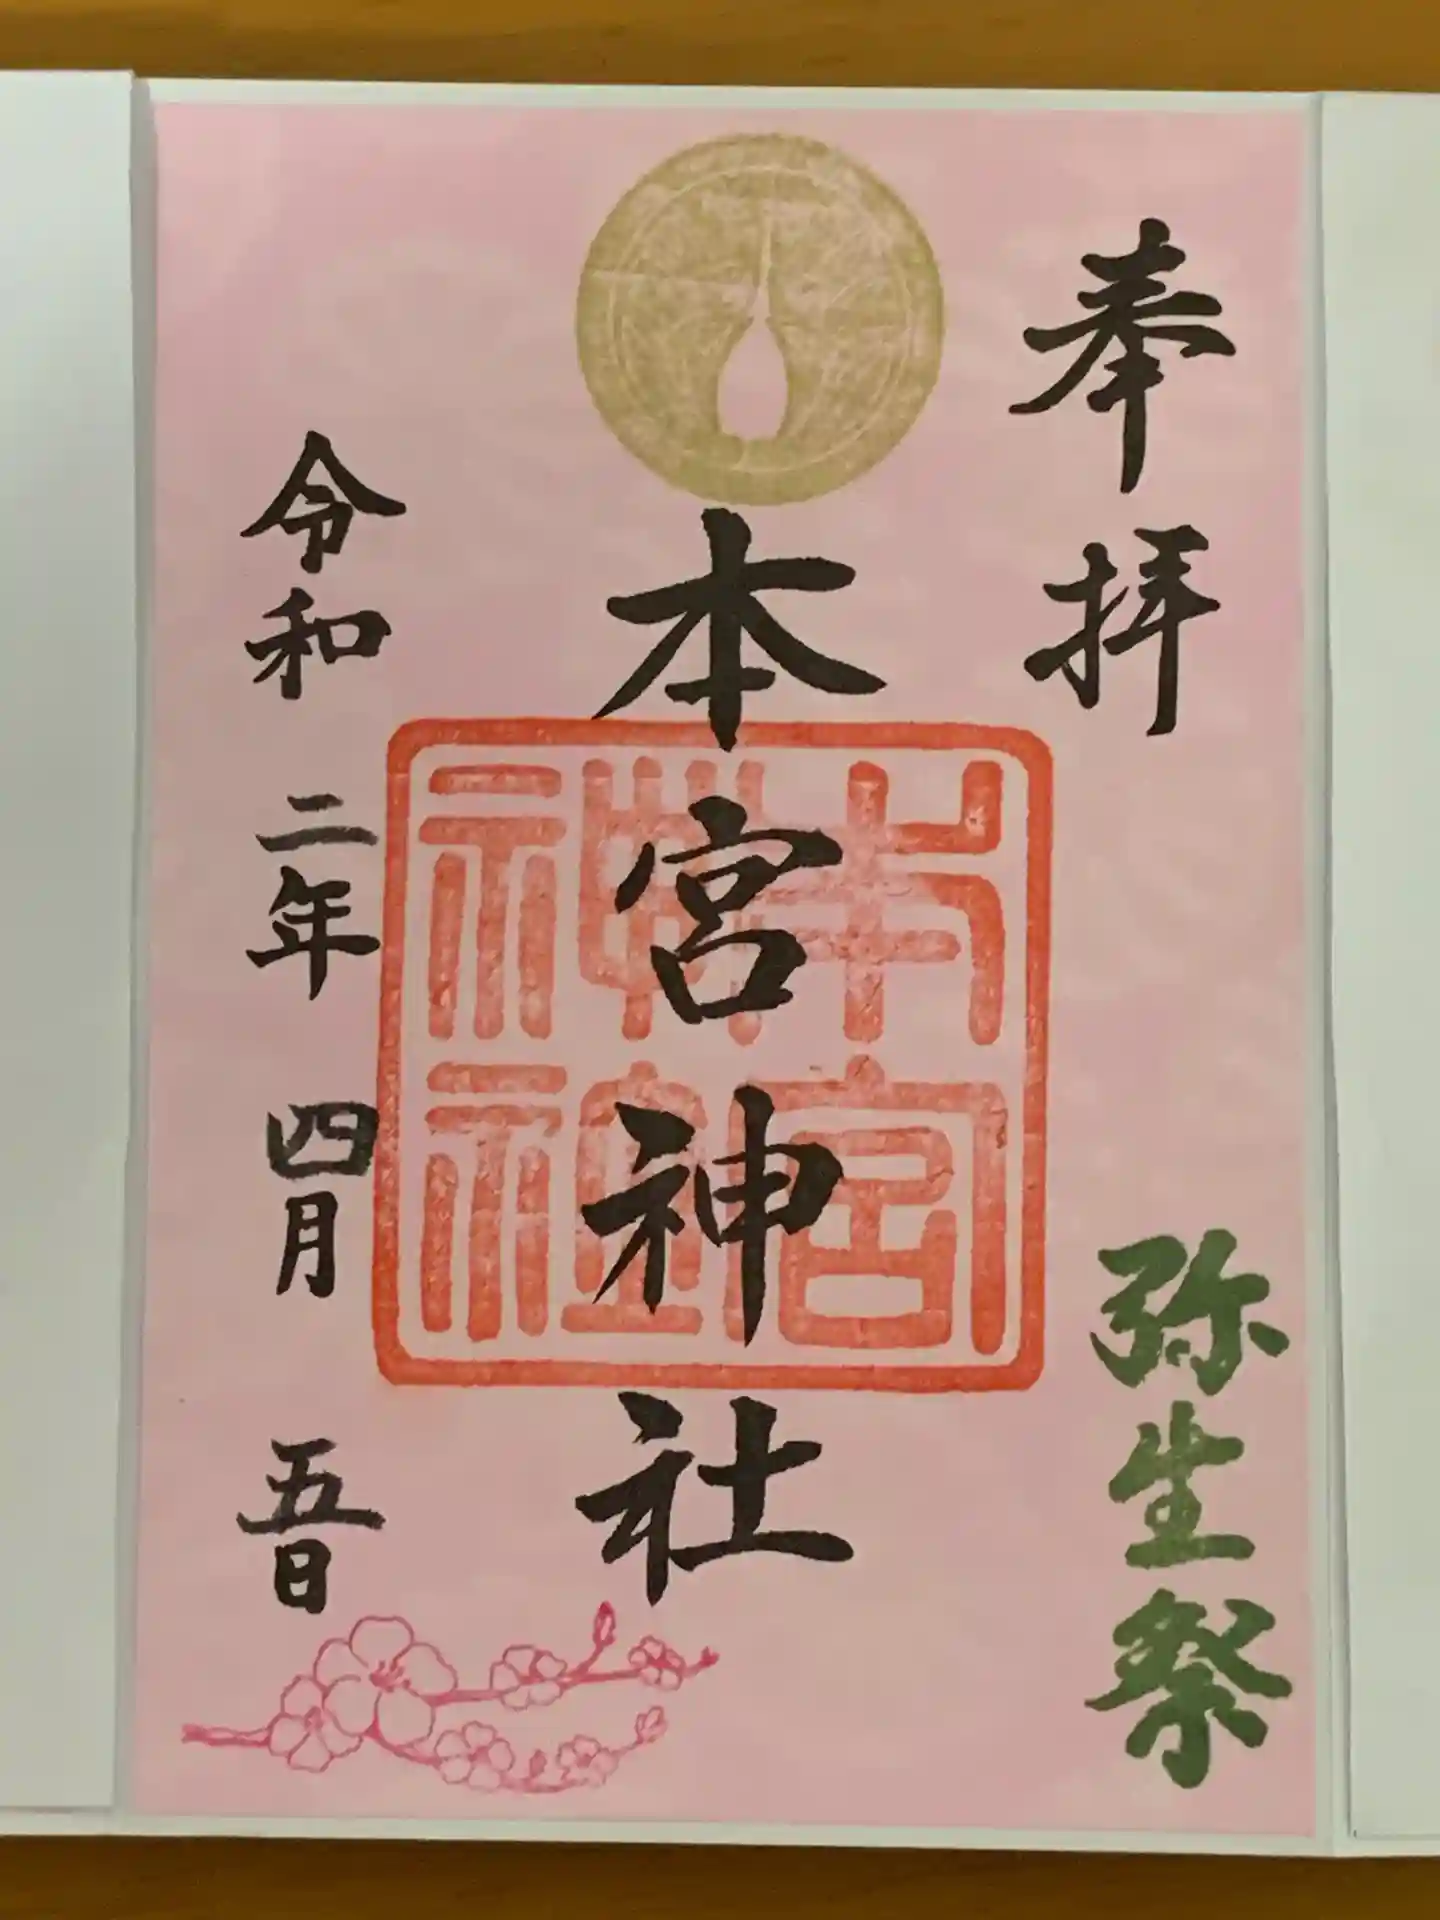 奉拝
弥生祭
本宮神社
本宮
神社
令和二年四月五日